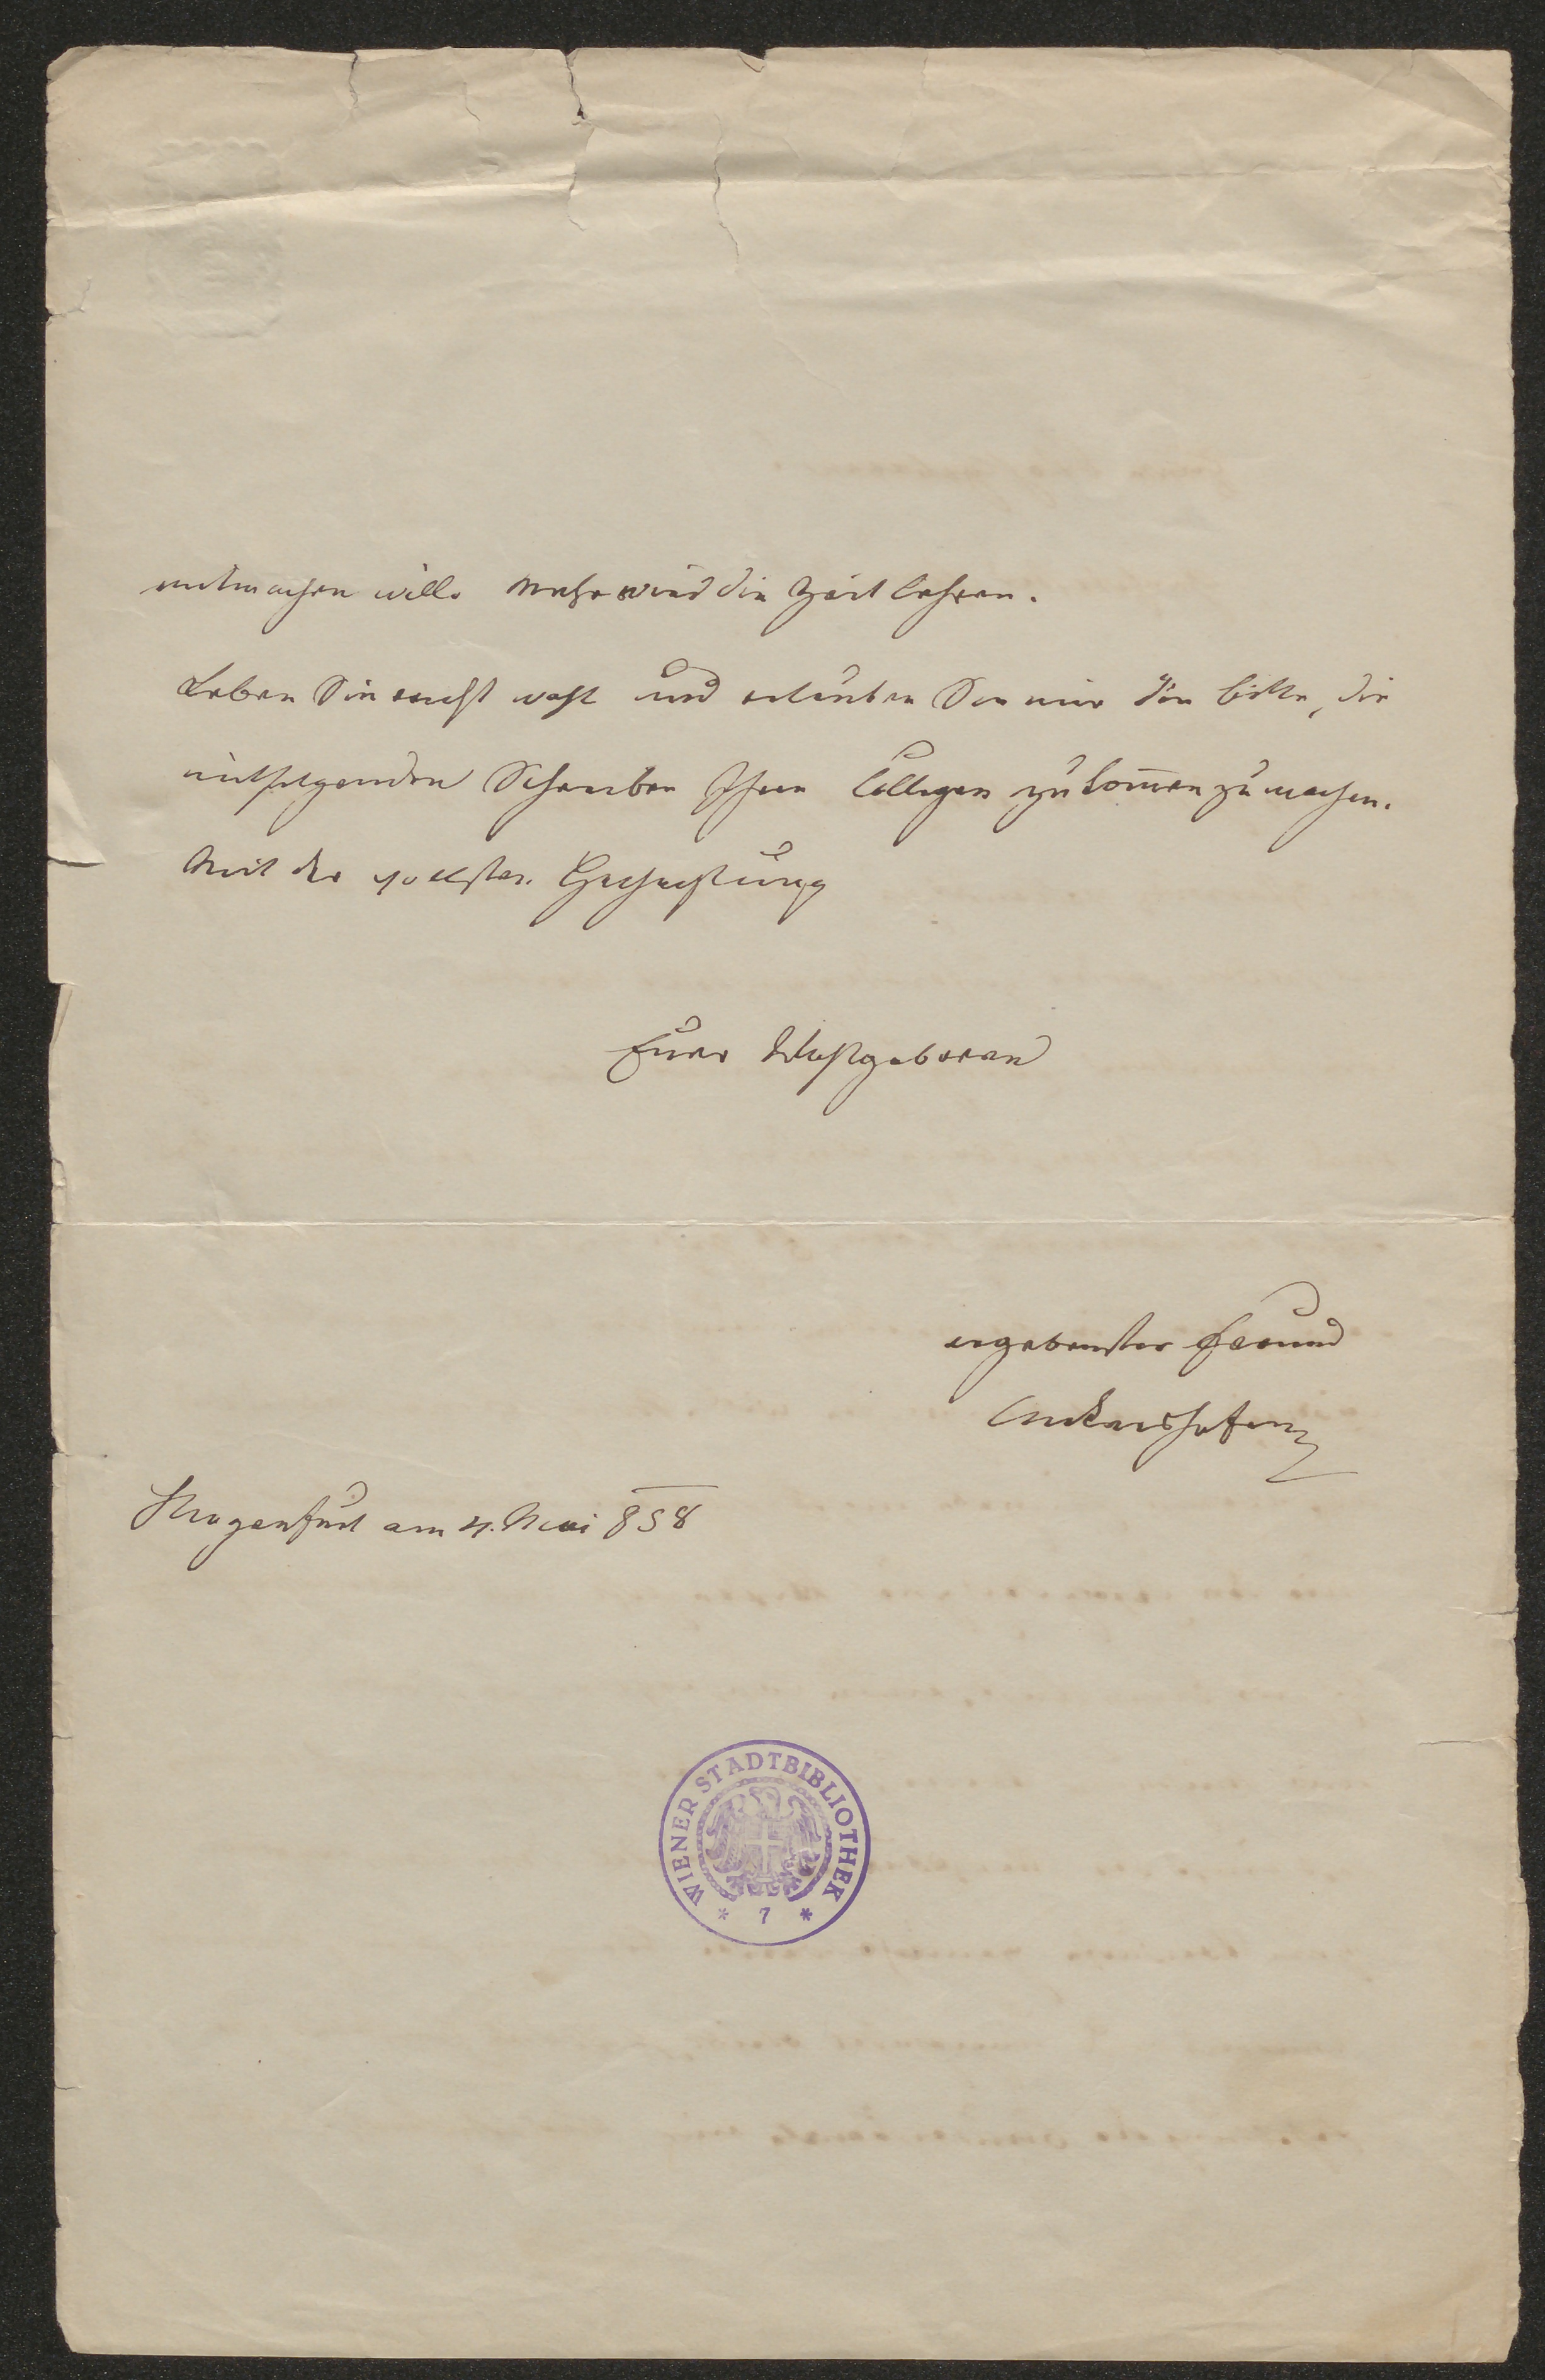 mitmachen will. Mehr wird die Zeit lehren.
Leben Sie recht wohl und erlauben Sie mir die Bitte, die
mitfolgenden Schreiben Ihren Collegen zukom̅en zu machen.
Mit der vollsten Hochachtung
Euer Wohlgeboren
ergebenster Freund
Ankershofen
Klagenfurt am 4. Mai 858
WIENER STADTBIBLIOTHEK
* 7 *